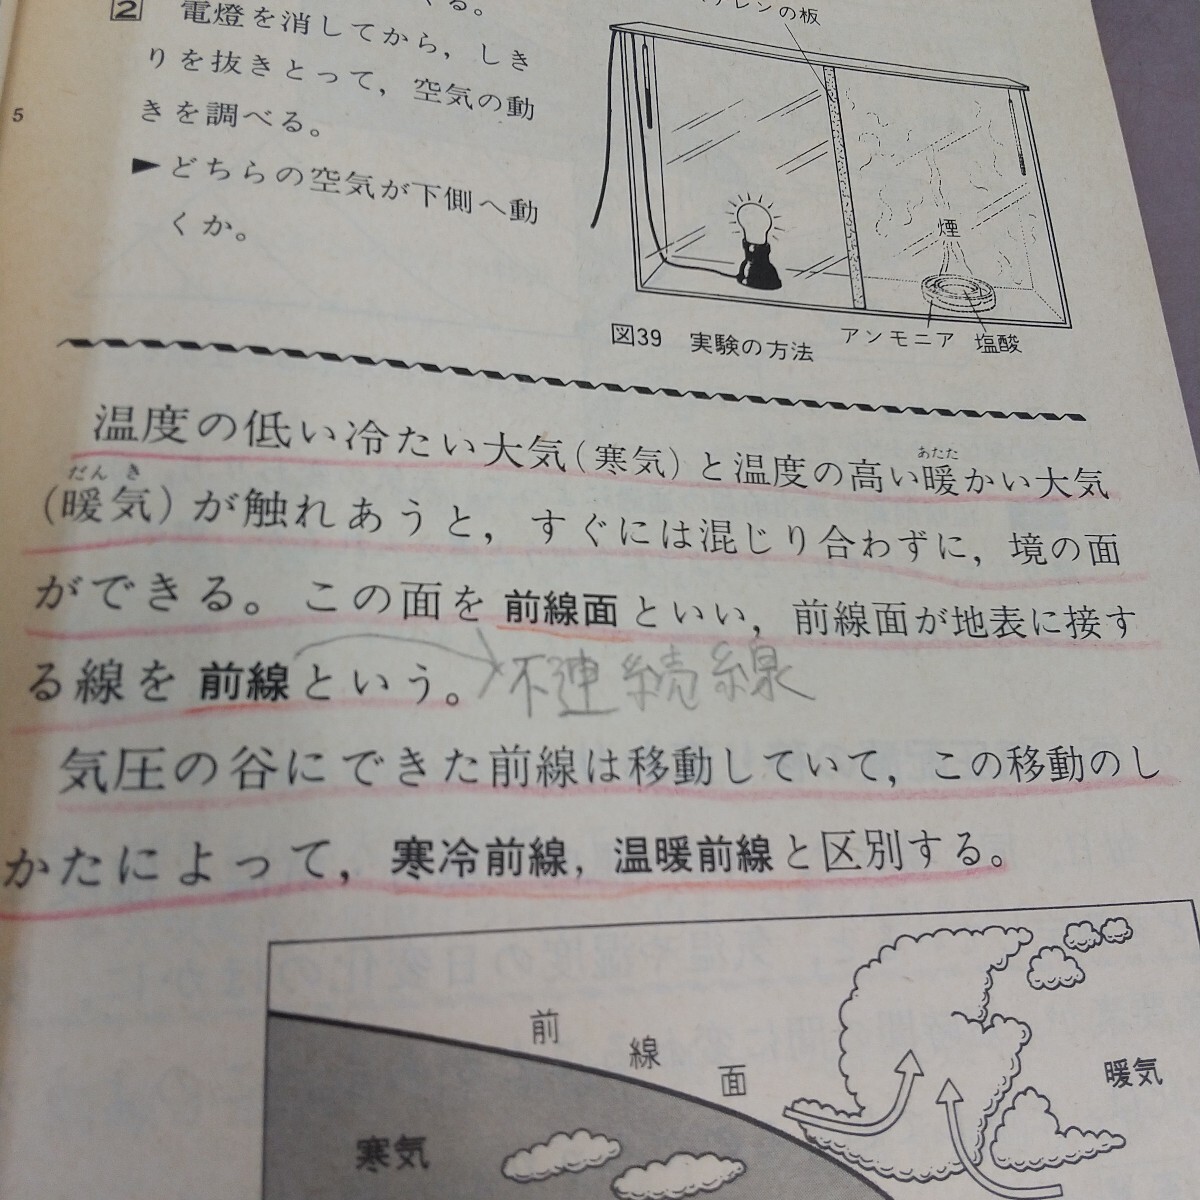 くる。
2 電燈を消してから，しき
りを抜きとって，空気の動
きを調べる。
▶どちらの空気が下側へ動
くか。
5
レンの板
煙
アンモニア 塩酸
図39 実験の方法
温度の低い冷たい大気(寒気)と温度の高い暖かい大気
あたた
だんき
(暖気)が触れあうと，すぐには混じり合わずに，境の面
ができる。この面を前線面といい，前線面が地表に接す
る線を前線という。
不連続線
気圧の谷にできた前線は移動していて，この移動のし
かたによって，寒冷前線，温暖前線と区別する。
前線面
暖気
寒気